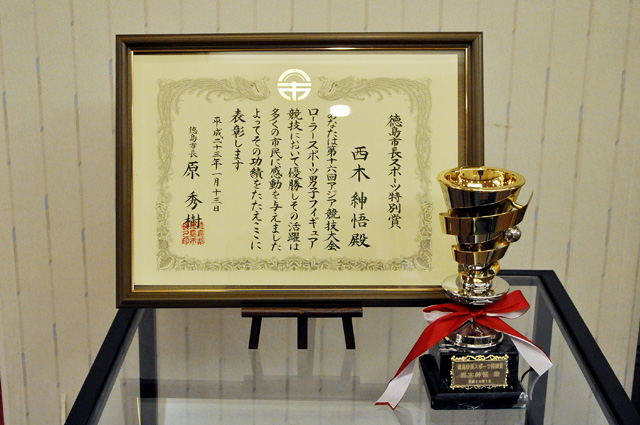 徳島市長スポーツ特別賞
西木紳悟殿
あなたは第十六回アジア競技大会
ローラースポーツ男子フィギュア
競技において優勝しその活躍は
多くの市民に感動を与えました
よってその功績をたたえここに
表彰します
平成二十三年一月十三日
徳島市長 原秀樹
徳島市長スポーツ特別賞
西木紳悟 殿